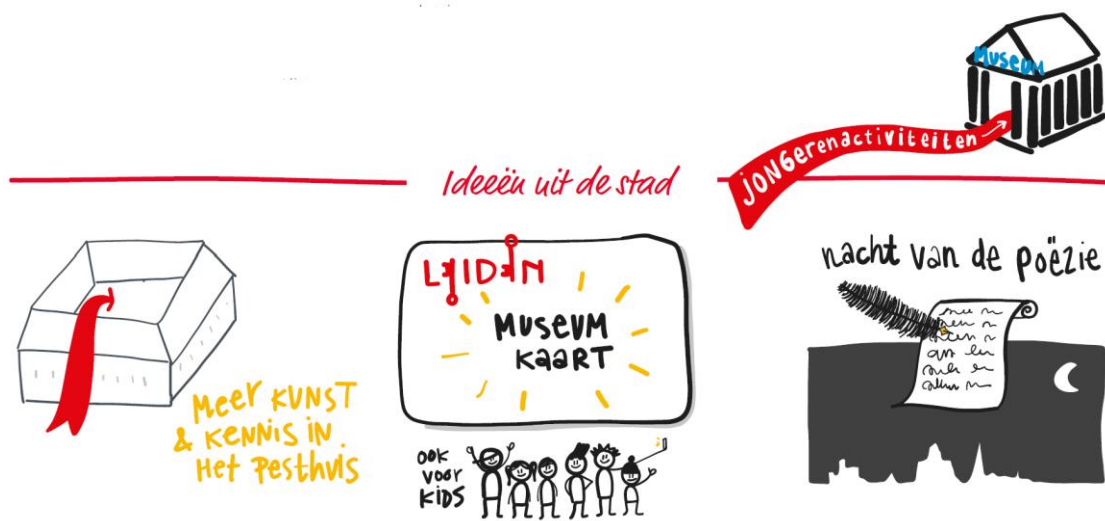 Museum
jongerenactiviteiten
Ideeën uit de stad
Meer KUNST
& KENNIS IN
Het Pesthuis
LEIDEN
MUSEUM
KAART
ook
voor
KIDS
nacht van de poëzie